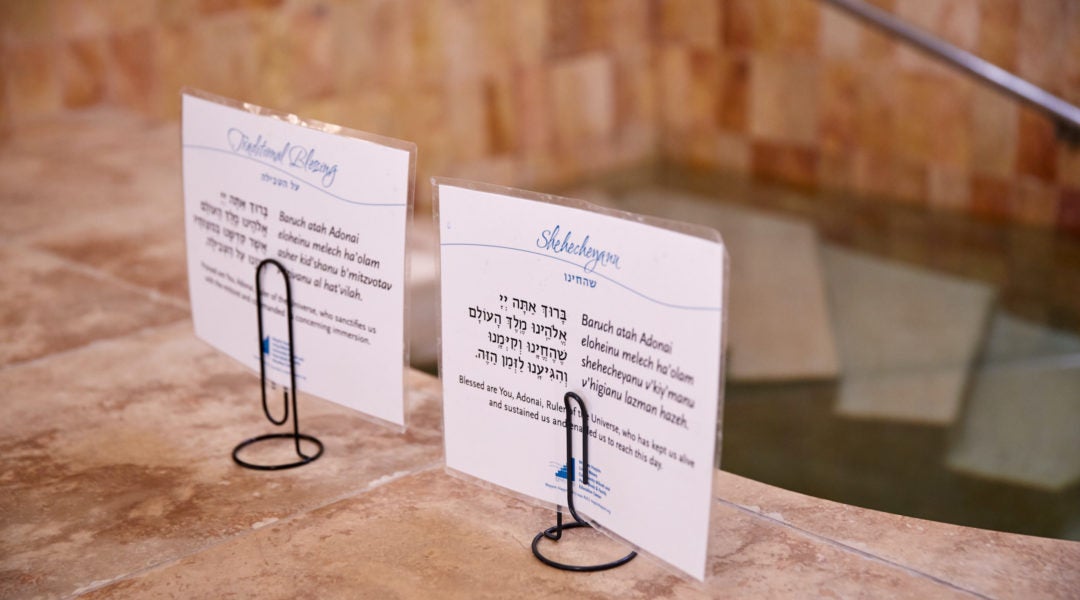 Traditional Blessing
על הטבילה
בָּרוּךְ אַתָּה יְיָ
אֱלֹהֵינוּ מֶלֶךְ הָעוֹלָם
אֲשֶׁר קִדְּשָׁנוּ בְּמִצְוֹתָיו
עַל הַטְּבִילָה.
Baruch atah Adonai
eloheinu melech ha'olam
asher kid'shanu b'mitzvotav
al hat'vilah.
Blessed are You, Adonai, Ruler of the Universe, who sanctifies us
with the mitzvot and concerning immersion.
Shehecheyanu
שהחינו
בָּרוּךְ אַתָּה יְיָ
אֱלֹהֵינוּ מֶלֶךְ הָעוֹלָם
שֶׁהֶחֱיָנוּ וְקִיְּמָנוּ
וְהִגִּיעָנוּ לַזְּמַן הַזֶּה.
Baruch atah Adonai
eloheinu melech ha'olam
shehecheyanu v'kiy'manu
v'higianu lazman hazeh.
Blessed are You, Adonai, Ruler of the Universe, who has kept us alive
and sustained us and enabled us to reach this day.